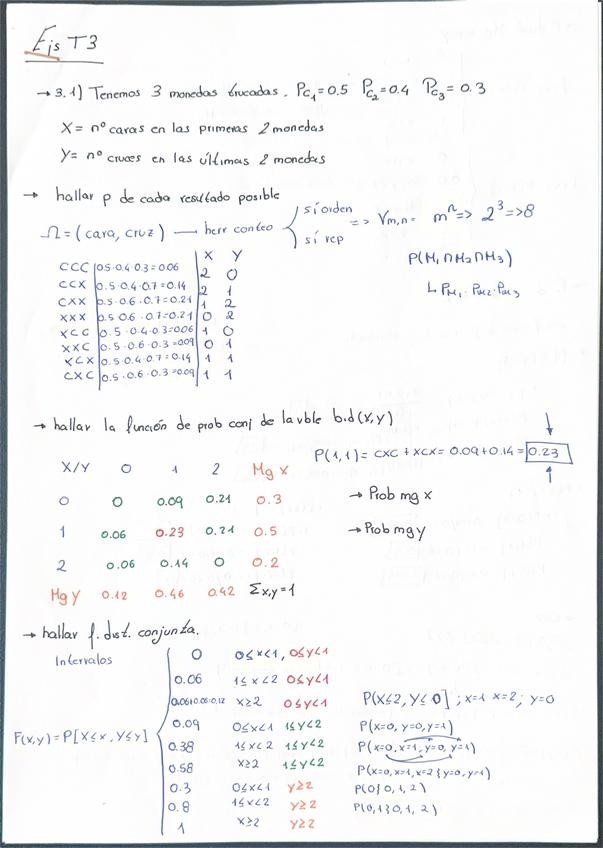 Ejs T3
→ 3.1) Tenemos 3 monedas trucadas. Pc₁=0.5 Pc₂=0.4 Pc₃=0.3
X= nº caras en las primeras 2 monedas
Y= nº cruces en las últimas 2 monedas
→ hallar p de cada resultado posible
Ω=(cara, cruz) → herr conteo { sí orden => Vm,n= mⁿ => 2³ => 8
sí rep
X Y
P(M₁∩M₂∩M₃)
CCC 0.5·0.4·0.3=0.06 2 0
↳ PM₁·PM₂·PM₃
CCX 0.5·0.4·0.7=0.14 2 1
CXX 0.5·0.6·0.7=0.21 1 2
XXX 0.5·0.6·0.7=0.21 0 2
XCC 0.5·0.4·0.3=0.06 1 0
XXC 0.5·0.6·0.3=0.09 0 1
XCX 0.5·0.4·0.7=0.14 1 1
CXC 0.5·0.6·0.3=0.09 1 1
→ hallar la función de prob conj de la vble bid(x,y)
P(1,1)= CXC + XCX= 0.09+0.14= 0.23
X/Y 0 1 2 Mg x
0 0 0.09 0.21 0.3 → Prob mg x
1 0.06 0.23 0.21 0.5 → Prob mg y
2 0.06 0.14 0 0.2
Mg Y 0.12 0.46 0.42 Σx,y=1
→ hallar f. dist. conjunta.
Intervalos
F(x,y)=P[X≤x, Y≤y]
0 0≤x<1, 0≤y<1
0.06 1≤x<2 0≤y<1
0.06+0.06=0.12 x≥2 0≤y<1 P(X≤2, Y≤0] ; x=1 x=2; y=0
0.09 0≤x<1 1≤y<2 P(x=0, y=0, y=1)
0.38 1≤x<2 1≤y<2 P(x=0, x=1, y=0, y=1)
0.58 x≥2 1≤y<2 P(x=0, x=1, x=2 { y=0, y=1)
0.3 0≤x<1 y≥2 P(0 } 0, 1, 2)
0.8 1≤x<2 y≥2 P(0,1 } 0, 1, 2)
1 x≥2 y≥2